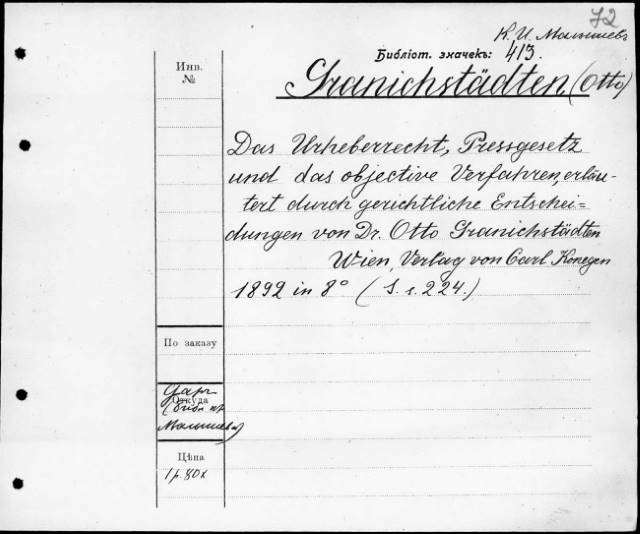 72
К. И. Малышевъ
Библіот. значекъ: 413.
Инв.
№
Granichstädten, (Otto)
Das Urheberrecht, Pressgesetz
und das objective Verfahren, erläu-
tert durch gerichtliche Entschei=
dungen von Dr. Otto Granichstädten
Wien, Verlag von Carl Konegen
1892 in 8° (S. 1. 224.)
По заказу
Даръ
Откуда
Малышева)
Цѣна
1 р. 80 к